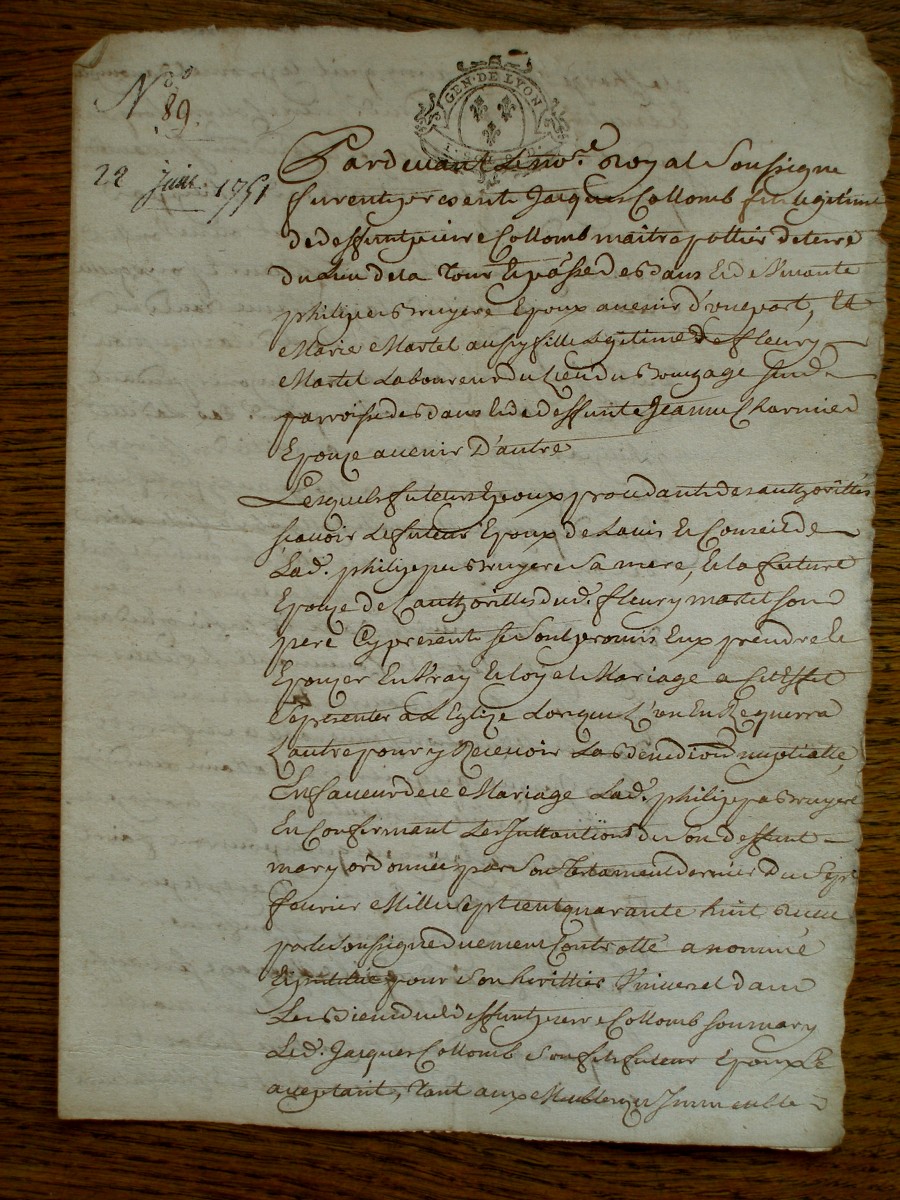 GEN. DE LYON
N.º
89.
22 juin 1751
Pardevant le no.re Royal Soussigne
furent presents Jacques Collomb fils legitime
de deffunt pierre Collomb maitre pottier de terre
du lieu de la Tour et de vivante
philippa Bruyere Epoux avenir d'une part, Et
Marie Martel aussy fille Legitime de fleury
Martel Laboureur du Lieu du Bouzage
parroisse de deffunte Jeanne Charmier
Epouse avenir D'autre
Lesquels futeurs Epoux procedants des authorittés
scavoir le futeur Epoux de Lavis Et Conseil de
Lad. philippa Bruyere Sa mere, et la future
Epouze de L'authorittes dud. fleury martel son
pere Cy present se sont promis Eux prendre Et
Epouzer En vray et loyal Mariage a cet Effet
se presenter a L'Eglize Lorque L'un En Requerra
L'autre pour y Recevoir La Benediction nuptialle,
En faveur de ce Mariage Lad. philippa Bruyere
En Confirmant Les Inttantions du son deffunt
mary ordonnée par son Testament dernier du Sept
fevrier Mille Sept cent quarante huit Receu
par le soussigne duement Controllé a nommé
pour son herittier Universel dans
Les Biens dud. deffunt pierre Collomb son mary
Led. Jacques Collomb son fils futeur Epoux Ce
aceptant, Tant aux Meubles qu Immeuble